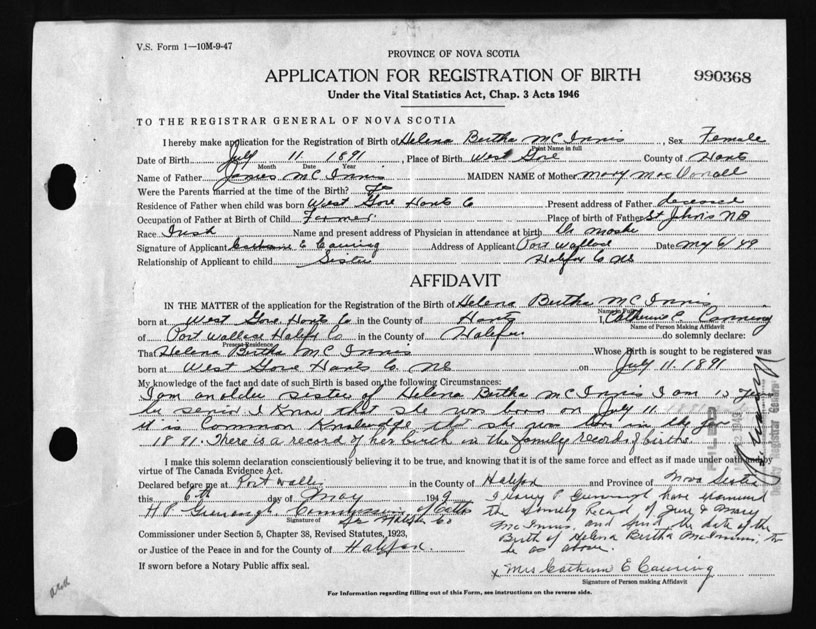 V.S. Form 1—10M-9-47
PROVINCE OF NOVA SCOTIA
APPLICATION FOR REGISTRATION OF BIRTH
990368
Under the Vital Statistics Act, Chap. 3 Acts 1946
TO THE REGISTRAR GENERAL OF NOVA SCOTIA
I hereby make application for the Registration of Birth of Helena Bertha McInnis, Sex Female
Print Name in full
Date of Birth July 11 1891, Place of Birth West Gore County of Hants
Month Date Year
Name of Father James McInnis MAIDEN NAME of Mother Mary MacDonall
Were the Parents married at the time of the Birth?
Residence of Father when child was born West Gore Hants Co Present address of Father deceased
Occupation of Father at Birth of Child Farmer. Place of birth of Father St John's NB
Race Irish Name and present address of Physician in attendance at birth Dr
Signature of Applicant Catherine E Canning Address of Applicant Port Wallace Date May 6/49
Relationship of Applicant to child Sister Halifax Co NS
AFFIDAVIT
IN THE MATTER of the application for the Registration of the Birth of Helena Bertha McInnis
Name in Full
born at West Gore Hants Co in the County of Hants I, Catherine E. Canning
Name of Person Making Affidavit
of Port Wallace Halifax Co in the County of Halifax do solemnly declare:
Present Residence
That Helena Bertha McInnis Whose Birth is sought to be registered was
born at West Gore Hants Co. NS on July 11. 1891
My knowledge of the fact and date of such Birth is based on the following Circumstances:
I am an older sister of Helena Bertha McInnis I am
senior I know that she was born on July 11
it is Common Knowledge that she was born in the year
1891. There is a record of her birth in the family records of births.
I make this solemn declaration conscientiously believing it to be true, and knowing that it is of the same force and effect as if made under oath by
virtue of The Canada Evidence Act.
Declared before me at Port Wallis in the County of Halifax and Province of Nova Scotia
this 6th day of May 1949
H P Commissioner of Oaths
Signature of
Halifax Co
I Harry P have examined
the family record of and Mary
McInnis, and find the date of the
Birth of Helena Bertha McInnis, to
be as above.
Commissioner under Section 5, Chapter 38, Revised Statutes, 1923,
or Justice of the Peace in and for the County of Halifax.
If sworn before a Notary Public affix seal.
x Mrs Catherine E Canning
Signature of Person making Affidavit
For Information regarding filling out of this Form, see instructions on the reverse side.
FILED
Deputy Registrar General